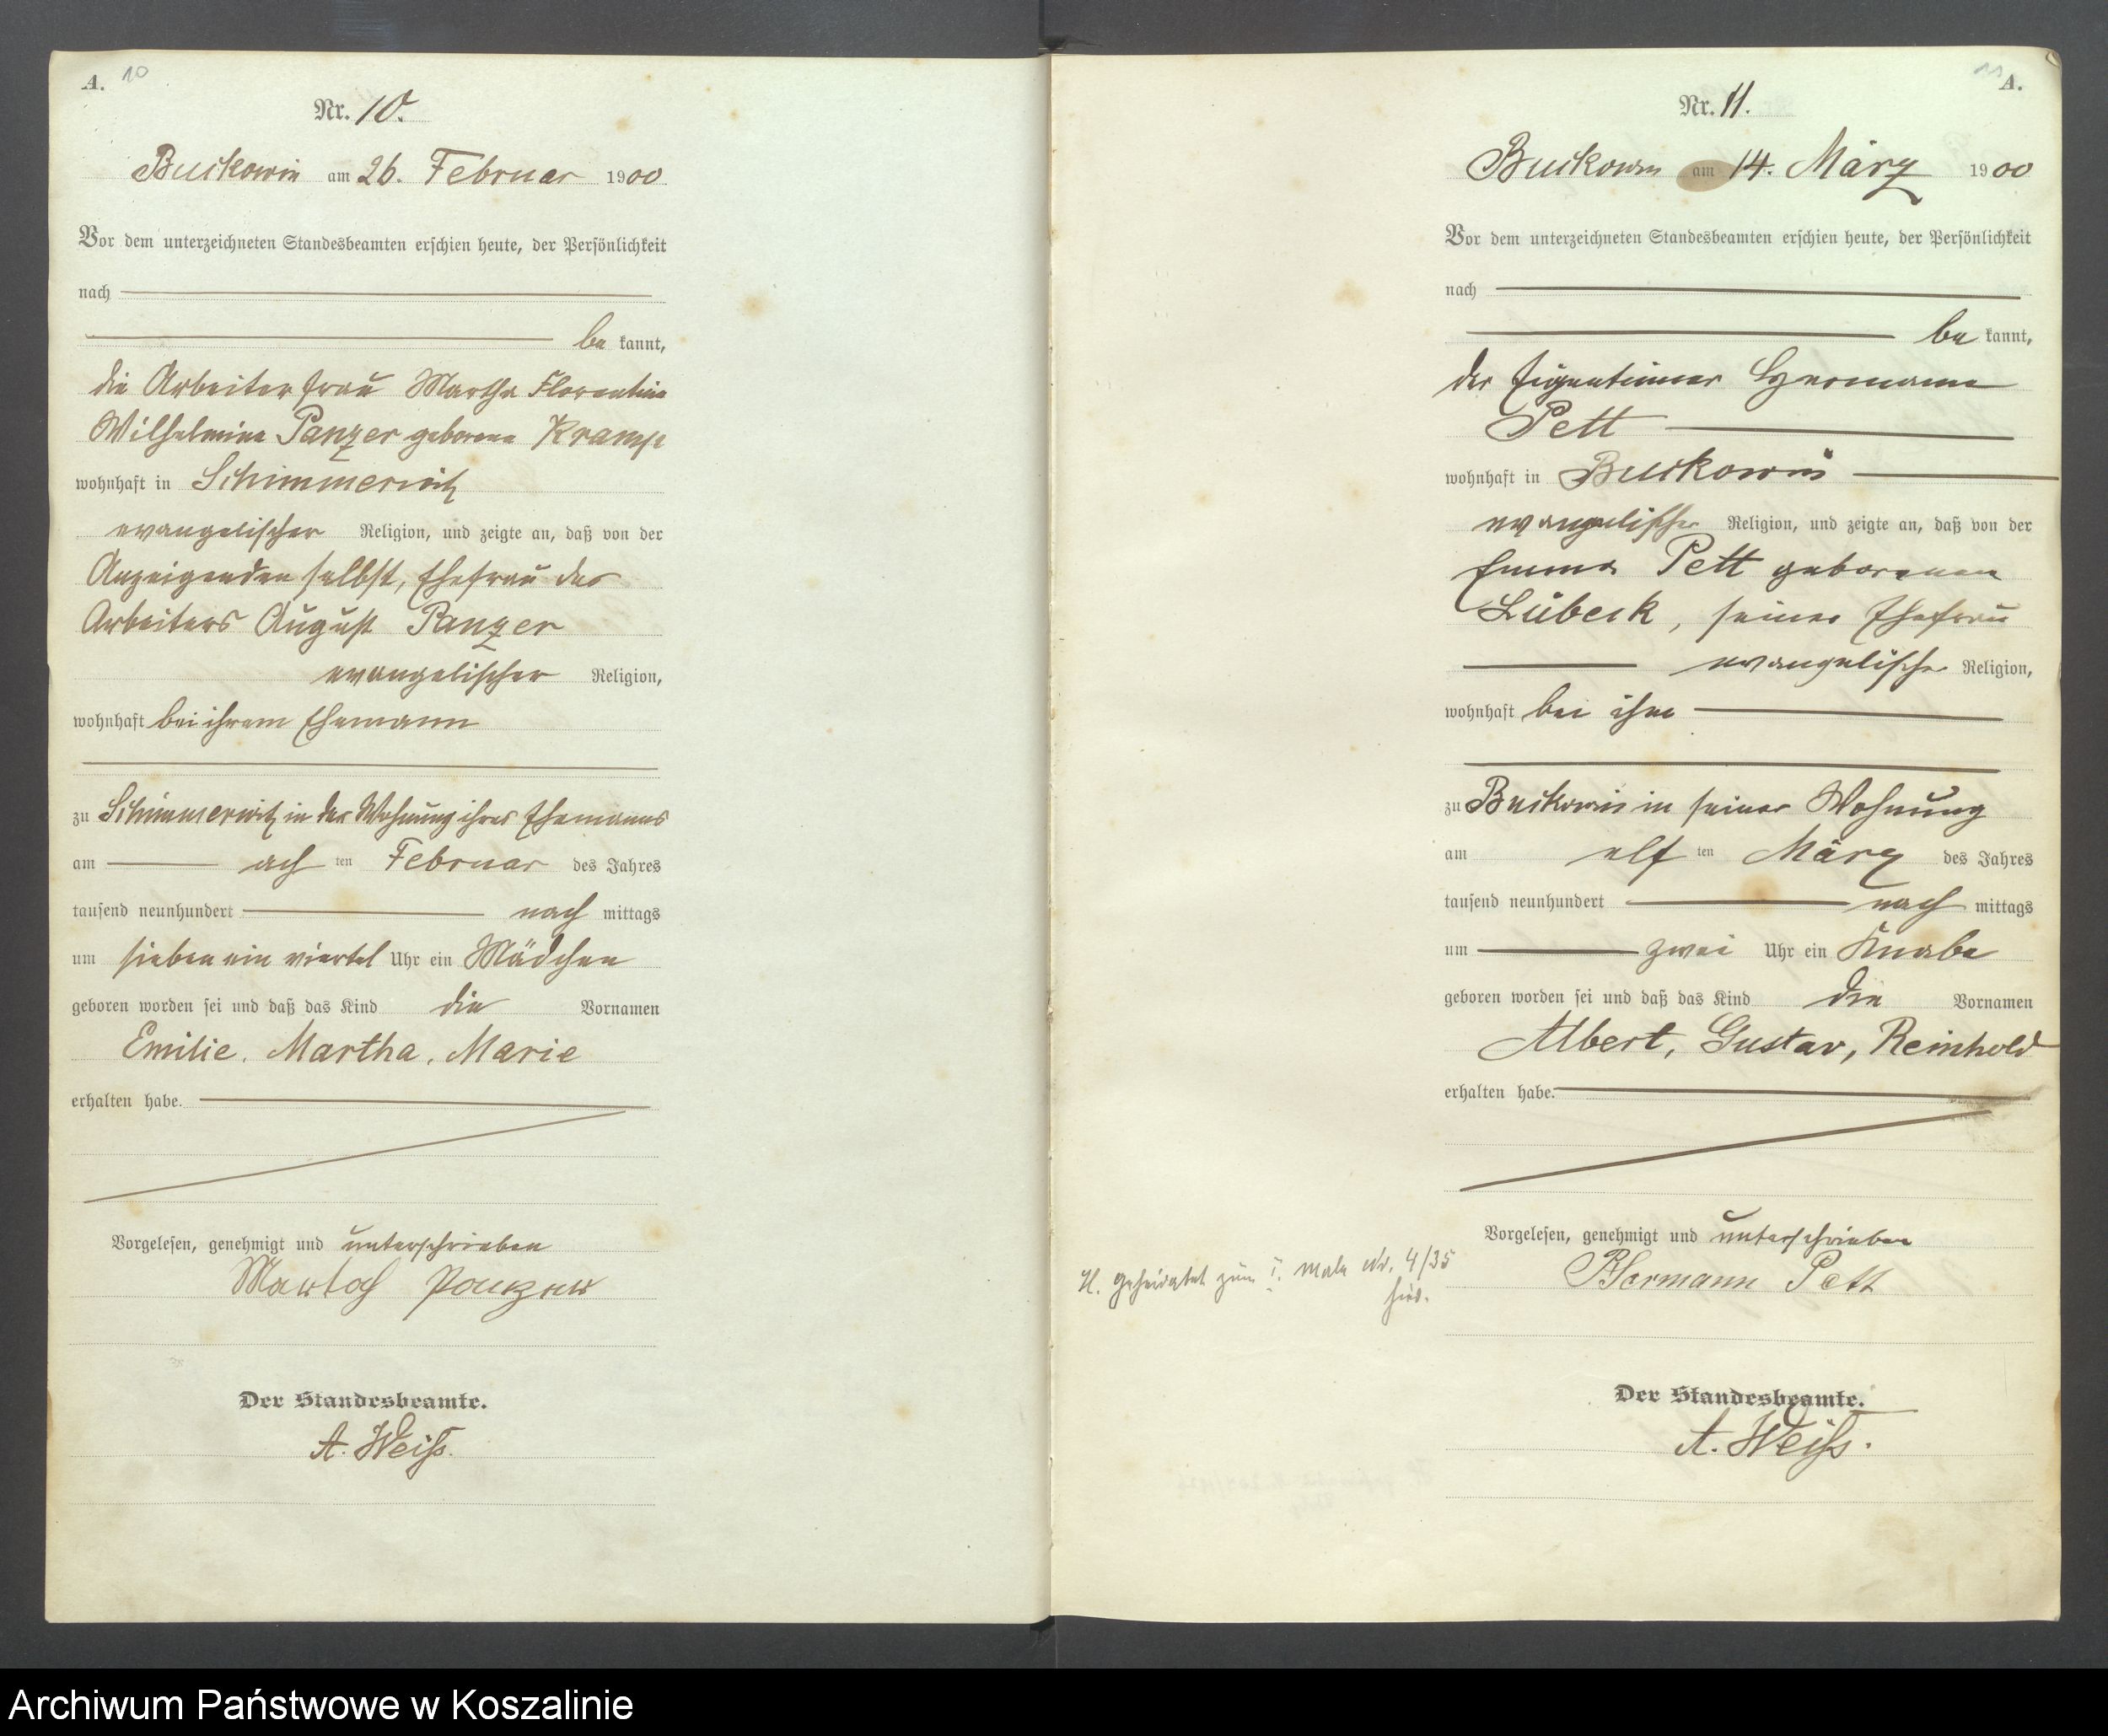 A. 10
Nr. 10.
Buckowin am 26. Februar 1900
Vor dem unterzeichneten Standesbeamten erschien heute, der Persönlichkeit
nach
be kannt,
die Arbeiterfrau Martha Florentine
Wilhelmine Panzer geborene Kramp
wohnhaft in Schimmerwitz
evangelischer Religion, und zeigte an, daß von der
Anzeigenden selbst, Ehefrau des
Arbeiters August Panzer
evangelischer Religion,
wohnhaft bei ihrem Ehemann
zu Schimmerwitz in der Wohnung ihres Ehemanns
am ach ten Februar des Jahres
tausend neunhundert nach mittags
um sieben ein viertel Uhr ein Mädchen
geboren worden sei und daß das Kind die Vornamen
Emilie, Martha, Marie
erhalten habe.
Vorgelesen, genehmigt und unterschrieben
Martah Panzer
Der Standesbeamte.
A. Weiß.
11 A.
Nr. 11.
Buckowin am 14. März 1900
Vor dem unterzeichneten Standesbeamten erschien heute, der Persönlichkeit
nach
be kannt,
der Eigentümer Hermann
Pett
wohnhaft in Buckowin
evangelischer Religion, und zeigte an, daß von der
Emma Pett geborenen
Lübeck, seiner Ehefrau
evangelischer Religion,
wohnhaft bei ihm
zu Buckowin in seiner Wohnung
am elf ten März des Jahres
tausend neunhundert nach mittags
um zwei Uhr ein Knabe
geboren worden sei und daß das Kind die Vornamen
Albert, Gustav, Reinhold
erhalten habe.
Vorgelesen, genehmigt und unterschrieben
Hermann Pett
H. geheiratet zum I. male Nr. 4/35
hier.
Der Standesbeamte.
A. Weiß.
Archiwum Państwowe w Koszalinie